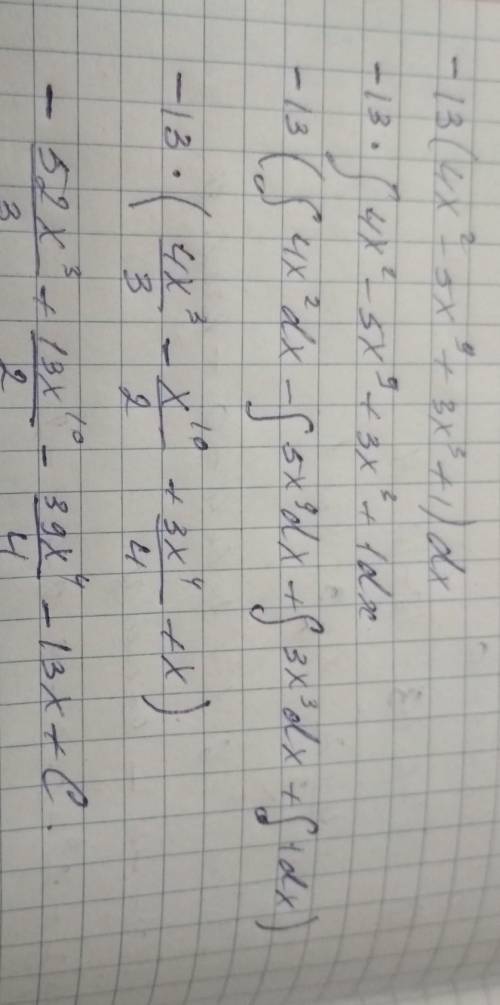 -13(4x² - 5x⁹ + 3x³ + 1) dx
-13 · ∫ 4x² - 5x⁹ + 3x³ + 1 dx
-13 (∫ 4x² dx - ∫ 5x⁹ dx + ∫ 3x³ dx + ∫ 1 dx)
-13 · (4x³/3 - x¹⁰/2 + 3x⁴/4 + x)
- 52x³/3 + 13x¹⁰/2 - 39x⁴/4 - 13x + C.